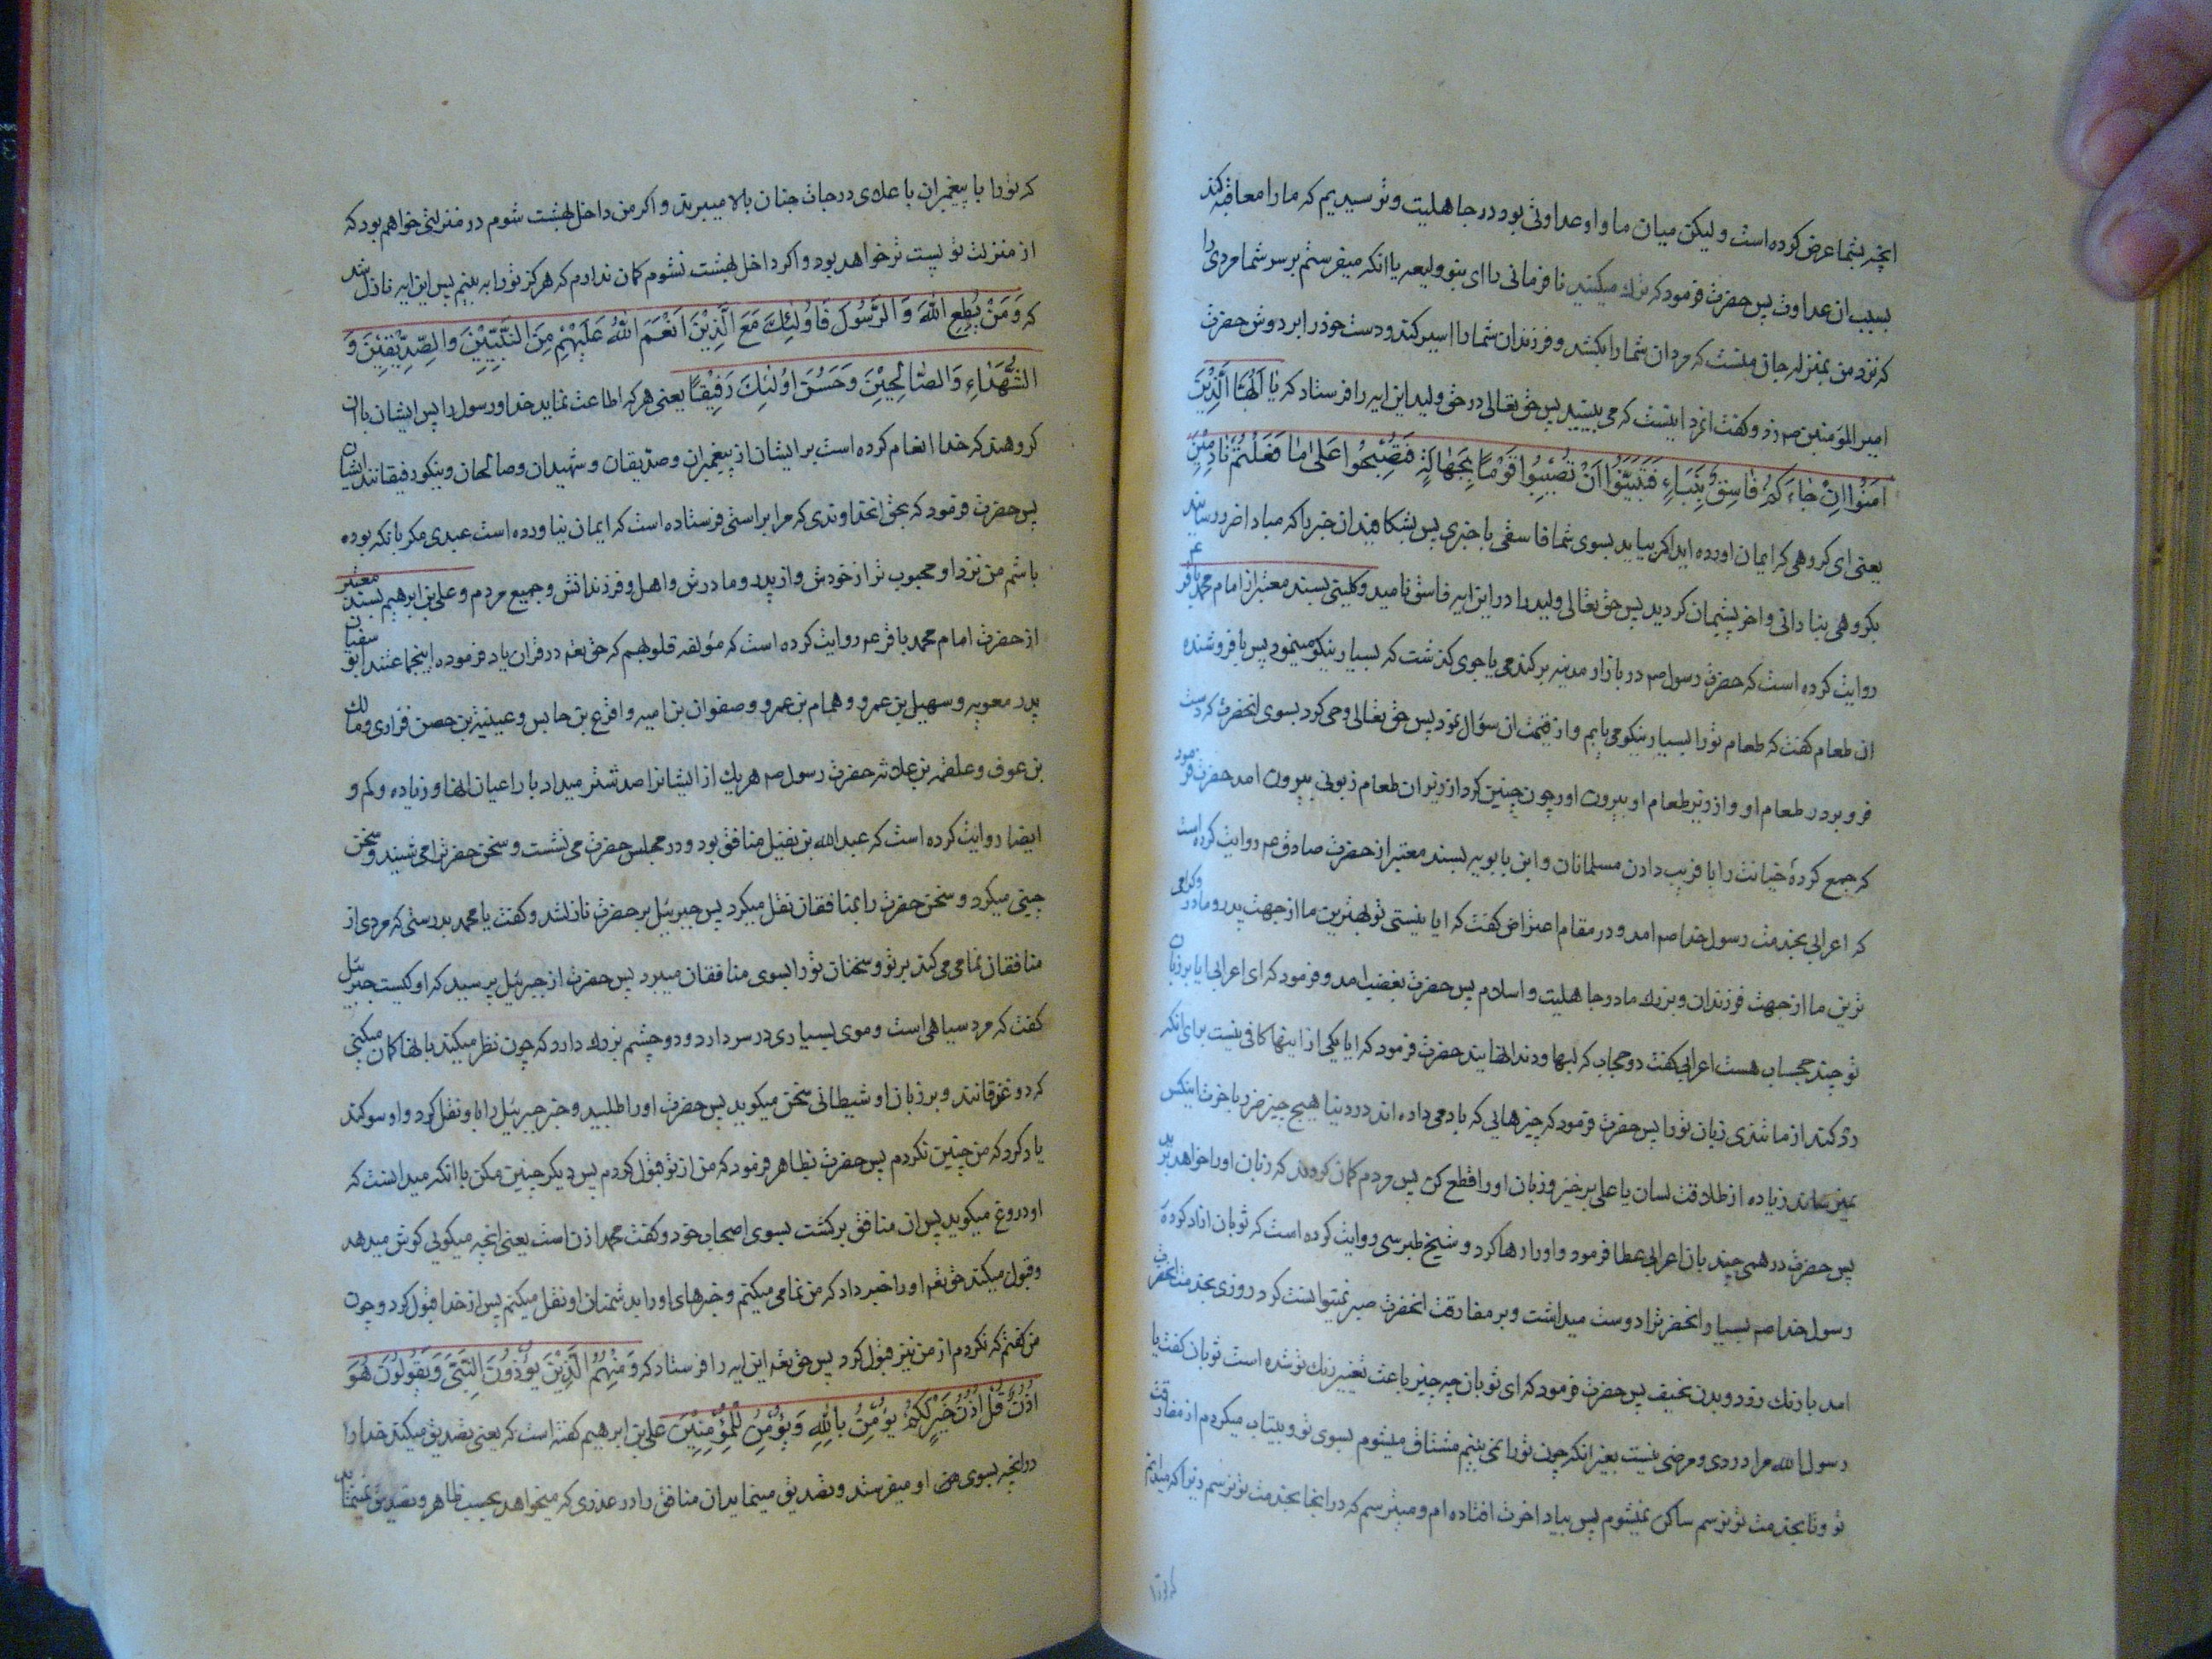 انچه بشما عرض کرده است ولیکن میان ما و او عداوتی بود در جاهلیت و ترسیدیم که ما را معاقبه کند
بسبب ان عداوت پس حضرت فرمود که ترك میکنید نافرمانی را ای بنو ولیعه یا انکه میفرستم بر سر شما مردی را
که نزد من بمنزله جان منست که مردان شما را بکشد و فرزندان شما را اسیر کند و دست خود را بر دوش حضرت
امیر المؤمنین صم زد و کفت انمرد اینست که می بینید پس حق تعالی در حق ولید این ایه را فرستاد که یا اَیُّهَا الَّذِیْنَ
اٰمَنُوْا اِنْ جٰاءَکُمْ فٰاسِقٌ بِنَبَاءٍ فَتَبَیَّنُوْا اَنْ تُصِیْبُوْا قَوْمًا بِجَهٰالَةٍ فَتُصْبِحُوْا عَلیٰ مٰا فَعَلْتُمْ نٰادِمِیْنَ
یعنی ای کروهی که ایمان اورده اید اکر بیاید بسوی شما فاسقی با خبری پس بشکافید ان خبر را که مبادا ضرر رسانید
بکروهی بنادانی و اخر پشیمان کردید پس حق تعالی ولید را در این ایه فاسق نامید و کلینی بسند معتبر از امام محمد باقر ع
روایت کرده است که حضرت رسول صم در بازار مدینه بر کندمی یا جوی کذشت که بسیار نیکو مینمود پس با فروشنده
ان طعام کفت که طعام تو را بسیار نیکو می یابم و از قیمت ان سؤال نمود پس حق تعالی وحی کرد بسوی انحضرت که دست
فرو برد در طعام او و از زیر طعام او بیرون اور چون چنین کرد از زیر ان طعام زبونی بیرون امد حضرت فرمود
که جمع کردهٔ خیانت را با فریب دادن مسلمانان و ابن بابویه بسند معتبر از حضرت صادق عم روایت کرده است
که اعرابی بخدمت رسول خدا صم امد و در مقام اعتراض کفت که ایا نیستی تو بهترین ما از جهت پدر و مادر و کرامی
ترین ما از جهت فرزندان و بزرك ما در جاهلیت و اسلام پس حضرت بغضب امد و فرمود که ای اعرابی ایا بر زبان
تو چند حجاب هست اعرابی کفت دو حجاب که لبها و دندانهایند حضرت فرمود که ایا یکی از اینها کافی نیست برای انکه
رد کند از ما تندی زبان تو را پس حضرت فرمود که چیزهایی که بادمی داده اند در دنیا هیچ چیز ضررش باخرت اینکس
نمیرساند زیاده از طلاقت لسان یا علی برخیز و زبان او را قطع کن پس مردم کمان کردند که زبان او را خواهد برید
پس حضرت درهمی چند بان اعرابی عطا فرمود و او را رها کرد و شیخ طبرسی روایت کرده است که ثوبان ازاد کردهٔ
رسول خدا صم بسیار انحضرترا دوست میداشت و بر مفارقت انحضرت صبر نمیتوانست کرد روزی بخدمت انحضرت
امد با رنك زرد و بدن نحیف پس حضرت فرمود که ای ثوبان چه چیز باعث تغییر رنك تو شده است ثوبان کفت یا
رسول الله مرا دردی و مرضی نیست بغیر انکه چون تو را نمی بینم مشتاق میشوم بسوی تو و بیتاب میکردم از مفارقت
تو و تا بخدمت تو نرسم ساکن نمیشوم پس بیاد اخرت افتاده ام و میترسم که در انجا بخدمت تو نرسم زیرا که میدانم
که تو را
که تو را با پیغمبران باعلای درجات جنان بالا میبرند و اکر من داخل بهشت شوم در منزلی خواهم بود که
از منزلت تو پست تر خواهد بود و اکر داخل بهشت نشوم کمان ندارم که هرکز تو را به بینم پس این ایه نازل شد
که وَمَنْ یُطِعِ اللّٰهَ وَ الرَّسُوْلَ فَاُولٰئِكَ مَعَ الَّذِیْنَ اَنْعَمَ اللّٰهُ عَلَیْهِمْ مِنَ النَّبِیِّیْنَ وَ الصِّدِّیْقِیْنَ وَ
الشُّهَدٰاءِ وَ الصّٰالِحِیْنَ وَ حَسُنَ اُولٰئِكَ رَفِیْقًا یعنی هر که اطاعت نماید خدا و رسول را پس ایشان با ان
کروهند که خدا انعام کرده است بر ایشان از پیغمبران و صدّیقان و شهیدان و صالحان و نیکو رفیقانند ایشان
پس حضرت فرمود که بحق انخداوندی که مرا براستی فرستاده است که ایمان نیاورده است عبدی مکر بانکه بوده
باشم من نزد او محبوب تر از خودش و از پدر و مادرش و اهل و فرزندانش و جمیع مردم و علی بن ابرهیم بسند معتبر
از حضرت امام محمد باقر عم روایت کرده است که مؤلفه قلوبهم که حق تعه در قران یاد فرموده اینجماعتند ابو سفیان
پدر معویه و سهیل بن عمرو و همام بن عمرو و صفوان بن امیه و اقرع بن حابس و عیینة بن حصن فزاری و مالك
بن عوف و علقمه بن علاثه حضرت رسول صم هریك از ایشانرا صد شتر میداد با راعیان انها و زیاده و کم و
ایضا روایت کرده است که عبد الله بن نفیل منافق بود و در مجلس حضرت می نشست و سخن حضرترا می شنید و سخن
چینی میکرد و سخن حضرت را بمنافقان نقل میکرد پس جبرئیل بر حضرت نازلشد و کفت یا محمد بدرستی که مردی از
منافقان نمامی می کند بر تو و سخنان تو را بسوی منافقان میبرد پس حضرت از جبرئیل پرسید که او کیست جبرئیل
کفت که مرد سیاهی است و موی بسیاری در سر دارد و دو چشم بزرك دارد که چون نظر میکند بانها کمان میکنی
که دو غزقانند و بر زبان او شیطانی سخن میکوید پس حضرت او را طلبید و خبر جبرئیل را باو نقل کرد و او سوکند
یاد کرد که من چنین نکردم پس حضرت بظاهر فرمود که من از تو قبول کردم پس دیکر چنین مکن با انکه میدانست که
او دروغ میکوید پس ان منافق برکشت بسوی اصحاب خود و کفت محمد اذن است یعنی انچه میکوئی کوش میدهد
و قبول میکند حق تعه او را خبر داد که من نمامی میکنم و خبرهای او را بدشمنان او نقل میکنم پس از خدا قبول کرد و چون
من کفتم که نکردم از من نیز قبول کرد پس حق تعه این ایه را فرستاد که وَ مِنْهُمُ الَّذِیْنَ یُؤْذُوْنَ النَّبِیَّ وَ یَقُوْلُوْنَ هُوَ
اُذُنٌ قُلْ اُذُنُ خَیْرٍ لَکُمْ یُؤْمِنُ بِاللّٰهِ وَ یُؤْمِنُ لِلْمُؤْمِنِیْنَ علی بن ابرهیم کفته است که یعنی تصدیق میکند خدا را
در انچه بسوی او میفرستد و تصدیق مینماید ان منافق را در عذری که میخواهد بحسب ظاهر و تصدیق نمینماید